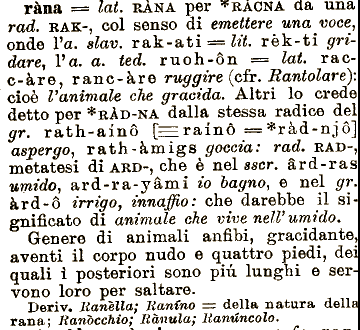 ràna = lat. RÀNA per *RÀCNA da una
rad. RAK-, col senso di emettere una voce,
onde l'a. slav. rak-ati = lit. rèk-ti gri-
dare, l'a. a. ted. ruoh-ôn = lat. rac-
c-àre, ranc-àre ruggire (cfr. Rantolare):
cioè l'animale che gracida. Altri lo crede
detto per *RÀD-NA dalla stessa radice del
gr. rath-aínô [= raínô = *ràd-njô]
aspergo, rath-àmigs goccia: rad. RAD-,
metatesi di ARD-, che è nel sscr. ârd-ras
umido, ard-ra-yâmi io bagno, e nel gr.
àrd-ô irrigo, innaffio: che darebbe il si-
gnificato di animale che vive nell'umido.
Genere di animali anfibi, gracidante,
aventi il corpo nudo e quattro piedi, dei
quali i posteriori sono piú lunghi e ser-
vono loro per saltare.
Deriv. Ranèlla; Ranìno = della natura della
rana; Ranòcchio; Rànula; Ranúncolo.